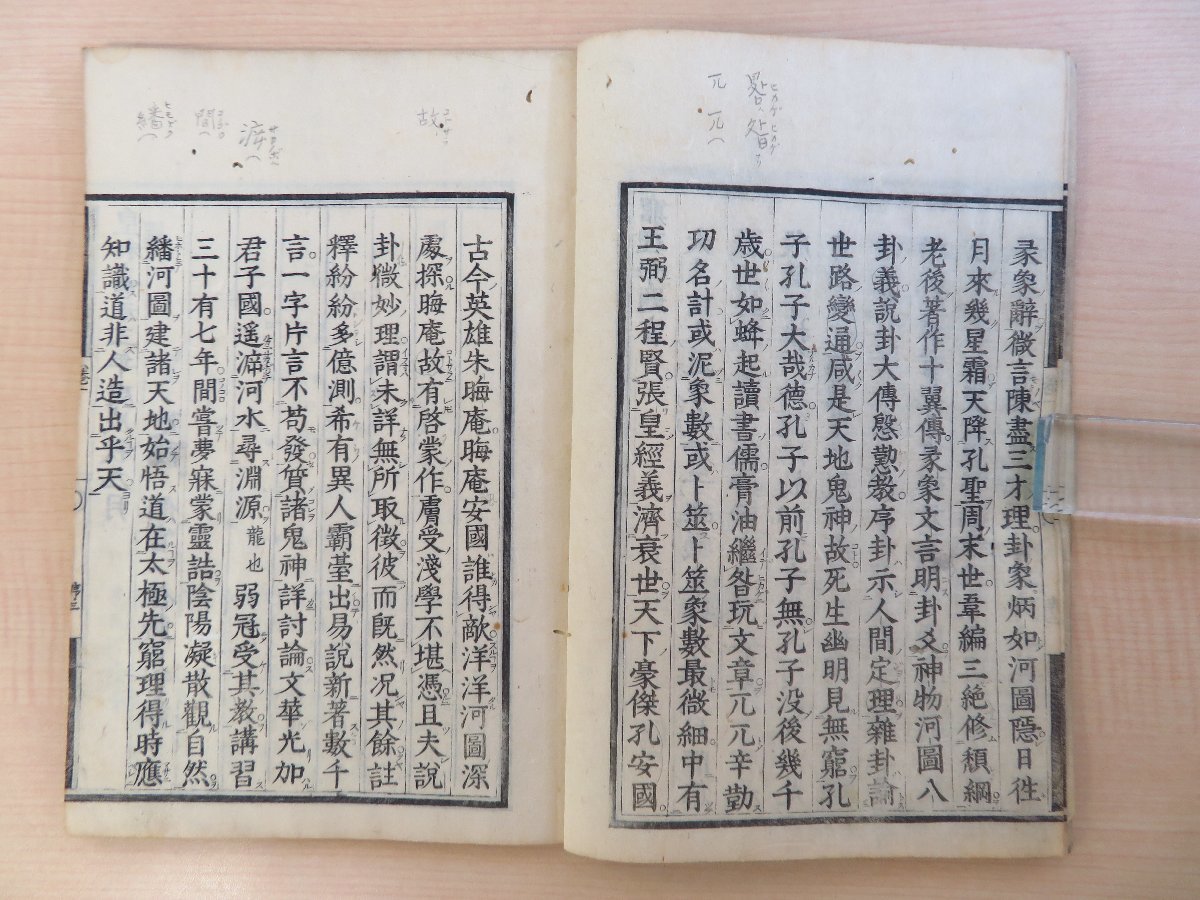 彖象辭微言陳盡三才理卦象炳如河圖隱日徃
月來幾星霜天降孔聖周末世韋編三絶修頽綱
老後著作十翼傳彖象文言明卦爻神物河圖八
卦義說卦大傳慇懃教序卦示人間定理雜卦論
世路變通咸是天地鬼神故死生幽明見無窮孔
子孔子大哉德孔子以前孔子無孔子没後幾千
歳世如蜂起讀書儒膏油繼晷玩文章兀兀辛勤
功名計或泥象數或卜筮卜筮象數最微細中有
王弼二程賢張皇經義濟衰世天下豪傑孔安國
古今英雄朱晦庵晦庵安國誰得敵洋洋河圖深
處探晦庵故有啓蒙作膚受淺學不堪憑且夫說
卦微妙理謂未詳無所取徴彼而既然况其餘註
釋紛紛多億測希有異人霸臺出易說新著數千
言一字片言不苟發質諸鬼神詳討論文華光加
君子國遥泝河水尋淵源龍也弱冠受其教講習
三十有七年間嘗夢寐蒙靈誥陰陽凝散觀自然
繙河圖建諸天地始悟道在太極先窮理得時應
知識道非人造出乎天
卷一
序三
晷
兀兀
故
間
繙